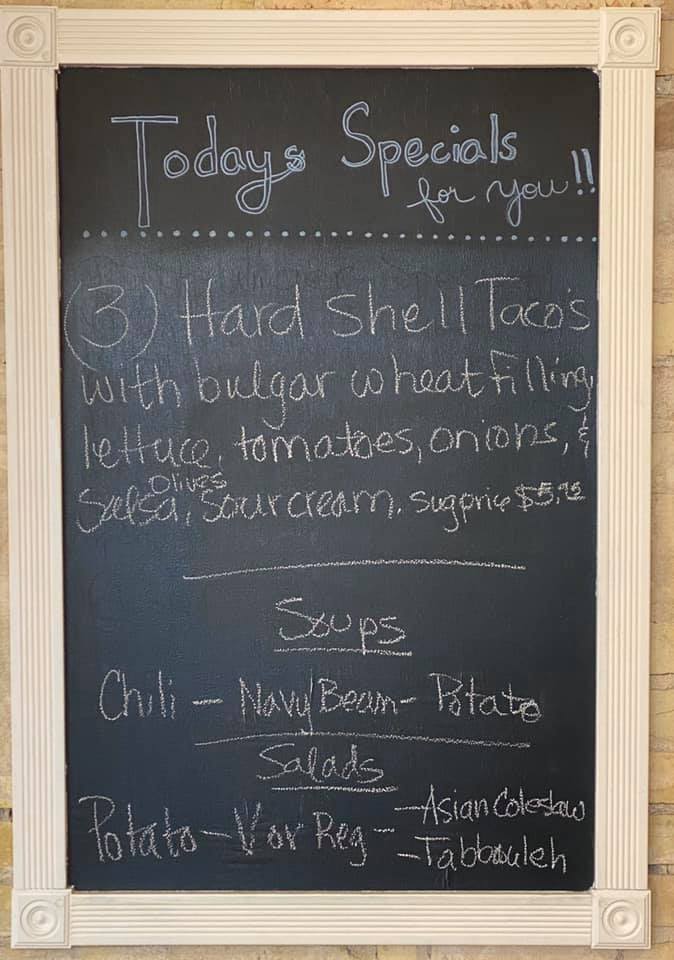 Todays Specials
for you!!
(3) Hard Shell Taco's
with bulgar wheat filling
lettuce, tomatoes, onions, &
olives
Salsa, Sour cream. sug price $5.95
Soups
Chili - Navy Bean - Potato
Salads
Potato - V or Reg - - Asian Coleslaw
- Tabbouleh